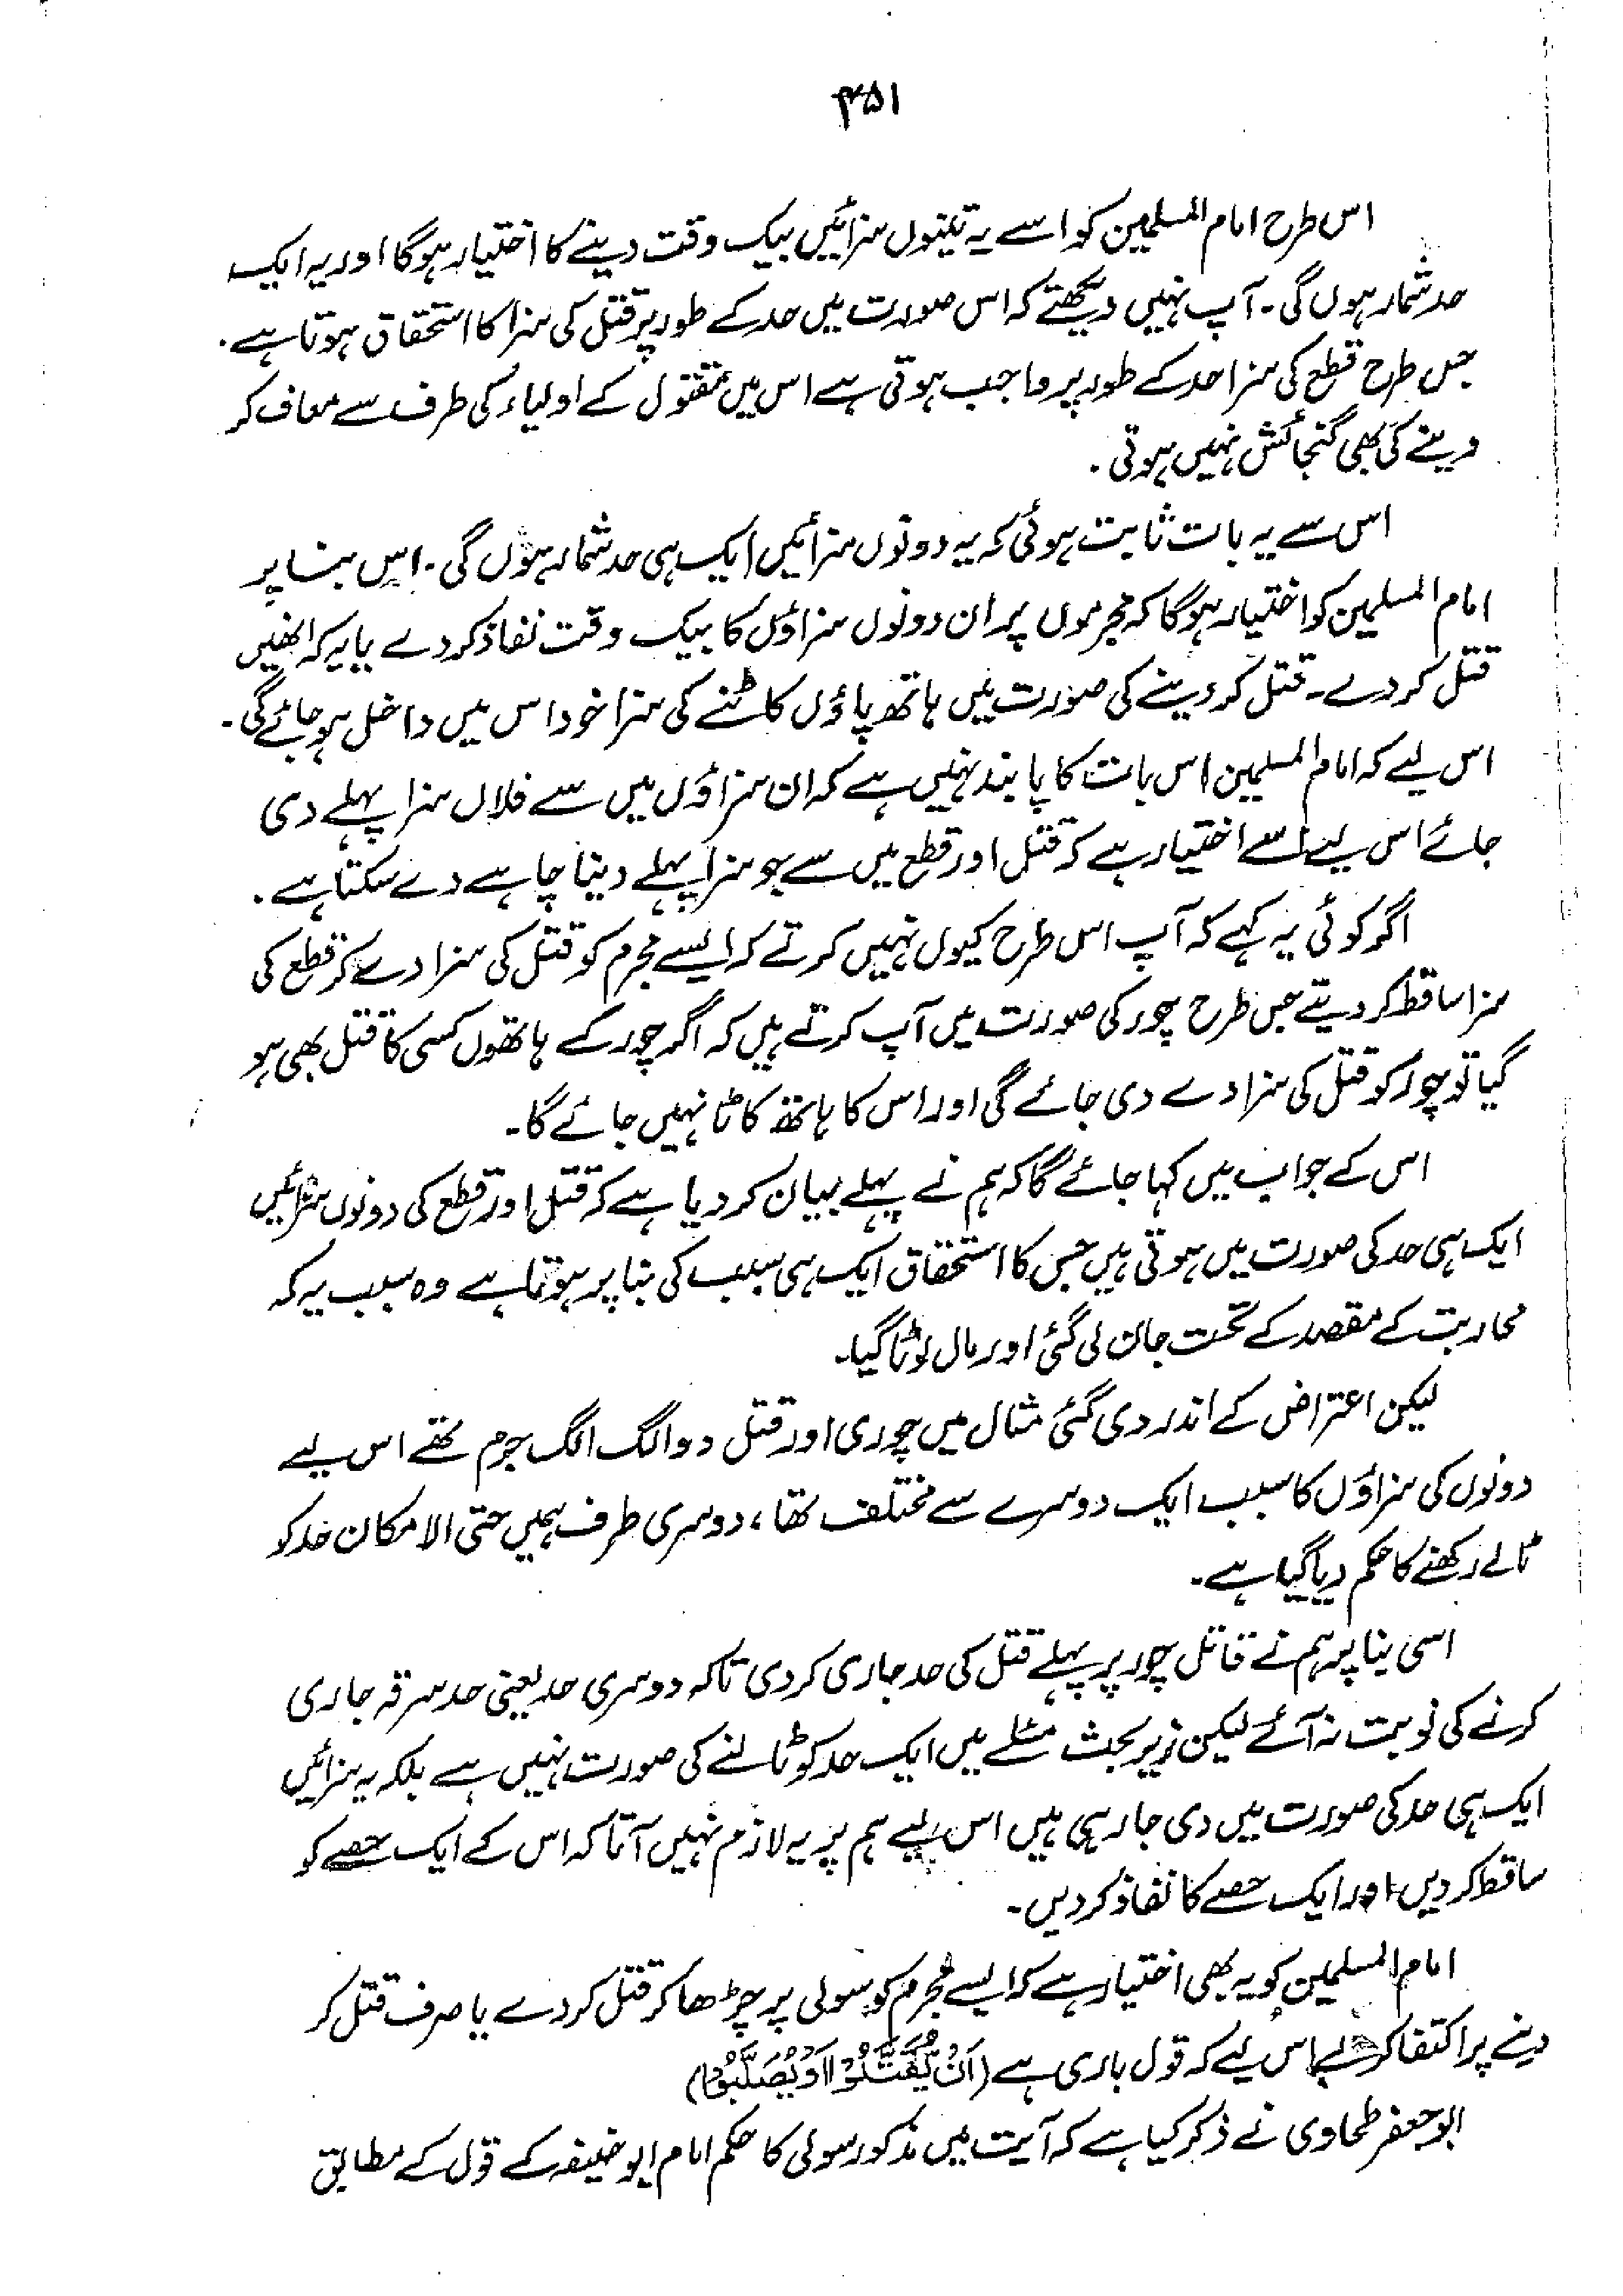 ۳۵۱
اس طرح امام المسلمین کو اسے یہ تینوں سزائیں بیک وقت دینے کا اختیار ہوگا اور یہ ایک
حد شمار ہوں گی۔ آپ نہیں دیکھتے کہ اس صورت میں حد کے طور پر قتل کی سزا کا استحقاق ہوتا ہے۔
جس طرح قطع کی سزا حد کے طور پر واجب ہوتی ہے اس میں مقتول کے اولیاء کی طرف سے معاف کر
دینے کی بھی گنجائش نہیں ہوتی۔
اس سے یہ بات ثابت ہوئی کہ یہ دونوں سزائیں ایک ہی حد شمار ہوں گی۔ اس بنا پر
امام المسلمین کو اختیار ہوگا کہ مجرموں پر ان دونوں سزاؤں کا بیک وقت نفاذ کر دے یا یہ کہ انھیں
قتل کر دے۔ قتل کر دینے کی صورت میں ہاتھ پاؤں کاٹنے کی سزا خود اس میں داخل ہو جائے گی۔
اس لیے کہ امام المسلمین اس بات کا پابند نہیں ہے کہ ان سزاؤں میں سے فلاں سزا پہلے دی
جائے اس لیے اسے اختیار ہے کہ قتل اور قطع میں سے جو سزا پہلے دینا چاہے دے سکتا ہے۔
اگر کوئی یہ کہے کہ آپ اس طرح کیوں نہیں کرتے کہ ایسے مجرم کو قتل کی سزا دے کر قطع کی
سزا ساقط کر دیتے جس طرح چور کی صورت میں آپ کرتے ہیں کہ اگر چور کے ہاتھوں کسی کا قتل بھی ہو
گیا تو چور کو قتل کی سزا دے دی جائے گی اور اس کا ہاتھ کاٹا نہیں جائے گا۔
اس کے جواب میں کہا جائے گا کہ ہم نے پہلے بیان کر دیا ہے کہ قتل اور قطع کی دونوں سزائیں
ایک ہی حد کی صورت میں ہوتی ہیں جس کا استحقاق ایک ہی سبب کی بنا پر ہوتا ہے وہ سبب یہ کہ
محاربت کے مقصد کے تحت جان لی گئی اور مال لوٹا گیا۔
لیکن اعتراض کے اندر دی گئی مثال میں چوری اور قتل دو الگ الگ جرم تھے اس لیے
دونوں کی سزاؤں کا سبب ایک دوسرے سے مختلف تھا، دوسری طرف ہمیں حتی الامکان حد کو
ٹالے رکھنے کا حکم دیا گیا ہے۔
اسی بنا پر ہم نے قاتل چور پر پہلے قتل کی حد جاری کر دی تاکہ دوسری حد یعنی حد سرقہ جاری
کرنے کی نوبت نہ آئے لیکن زیر بحث مسئلے میں ایک حد کو ٹالنے کی صورت نہیں ہے بلکہ یہ سزائیں
ایک ہی حد کی صورت میں دی جا رہی ہیں اس لیے ہم پر یہ لازم نہیں آتا کہ اس کے ایک حصے کو
ساقط کر دیں اور ایک حصے کا نفاذ کر دیں۔
امام المسلمین کو یہ بھی اختیار ہے کہ ایسے مجرم کو سولی پر چڑھا کر قتل کر دے یا صرف قتل کر
دینے پر اکتفا کرلے اس لیے کہ قول باری ہے (اَنْ یُّقَتَّلُوْٓا اَوْ یُصَلَّبُوْٓا)
ابو جعفر طحاوی نے ذکر کیا ہے کہ آیت میں مذکور سولی کا حکم امام ابو حنیفہ کے قول کے مطابق